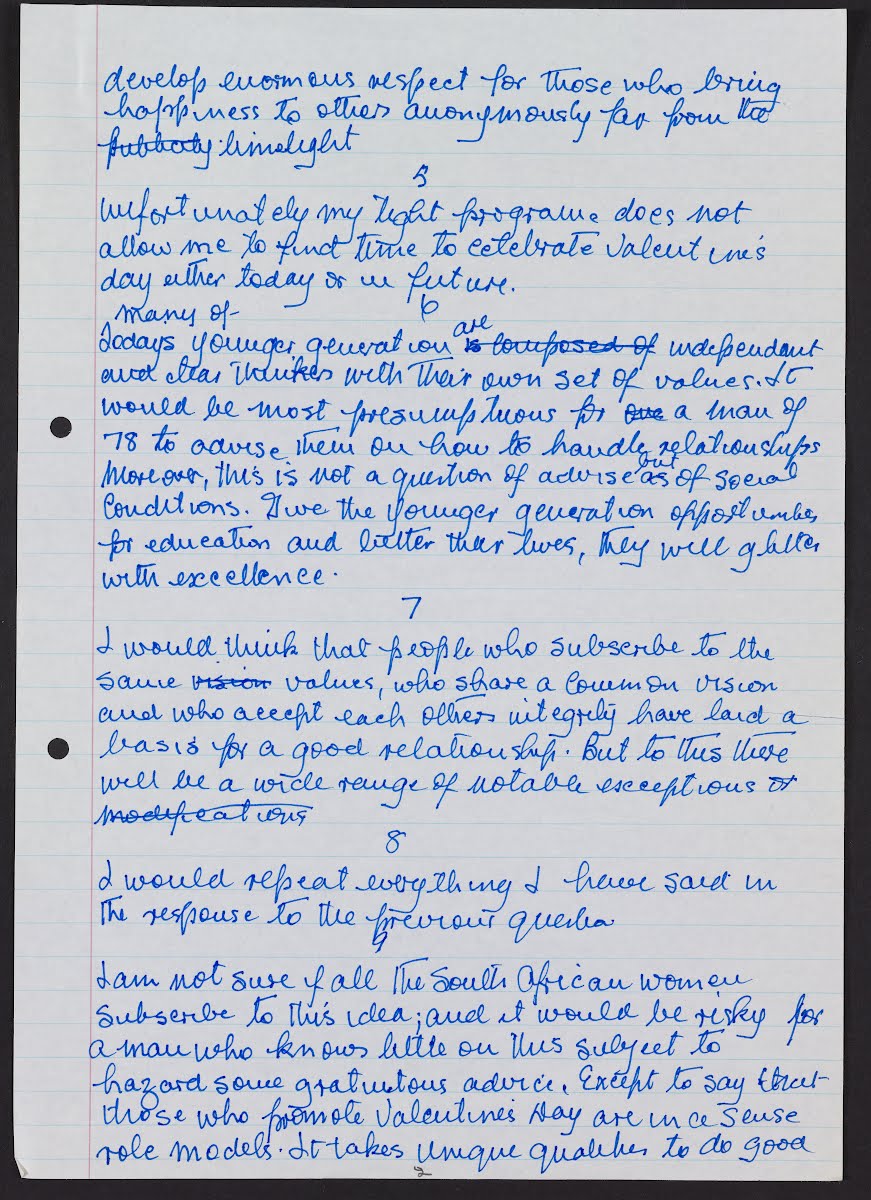 develop enormous respect for those who bring
happiness to others anonymously far from the
publicity limelight
5
Unfortunately my tight programe does not
allow me to find time to celebrate Valentine's
day either today or in future.
6
many of
Todays younger generation is composed of are independent
and clear thinkers with their own set of values. It
would be most presumptuous for one a man of
78 to advise them on how to handle relationships
Moreover, this is not a question of advise but as of social
Conditions. Give the younger generation opportunities
for education and better their lives, they will glitter
with excellence.
7
I would think that people who subscribe to the
same vision values, who share a common vision
and who accept each others integrity have laid a
basis for a good relationship. But to this there
will be a wide range of notable exceptions or
modifications
8
I would repeat everything I have said in
the response to the previous question
9
I am not sure if all the South African women
subscribe to this idea; and it would be risky for
a man who knows little on this subject to
hazard some gratuitous advice. Except to say that
those who promote Valentine's Day are in a sense
role models. It takes unique qualities to do good
2